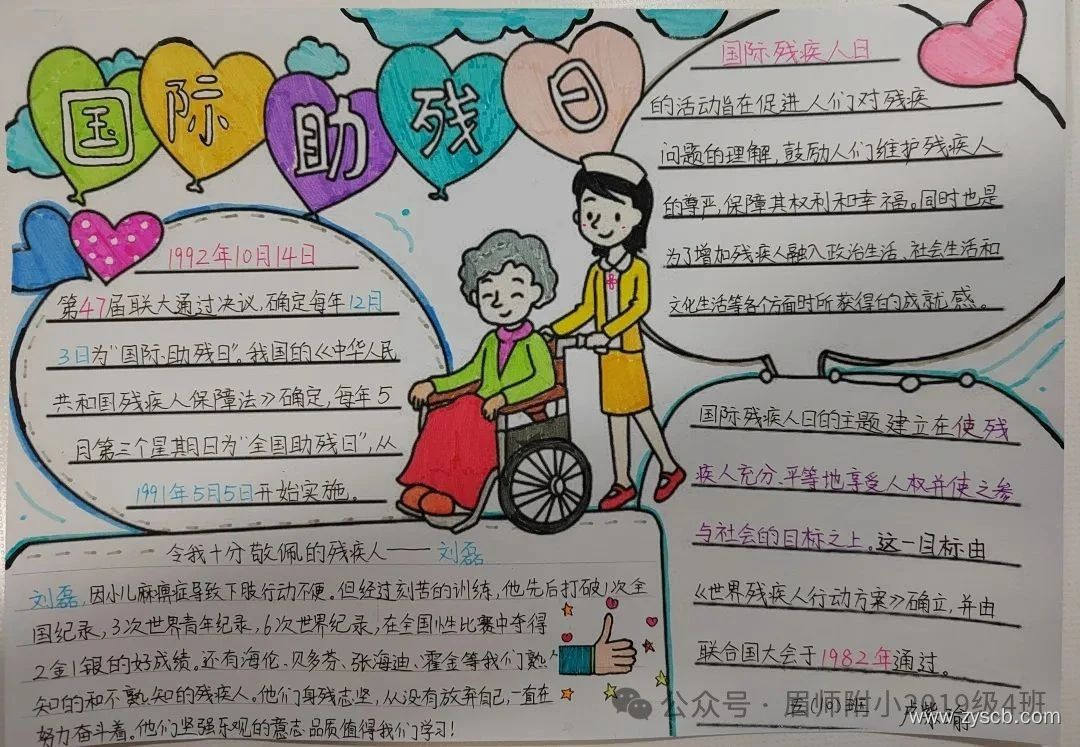 国际助残日
1992年10月14日
第47届联大通过决议,确定每年12月
3日为“国际助残日”。我国的《中华人民
共和国残疾人保障法》确定,每年5
月第三个星期日为“全国助残日”,从
1991年5月5日开始实施。
国际残疾人日
的活动旨在促进人们对残疾
问题的理解,鼓励人们维护残疾人
的尊严,保障其权利和幸福。同时也是
为了增加残疾人融入政治生活、社会生活和
文化生活等各个方面时所获得的成就感。
国际残疾人日的主题建立在使残
疾人充分、平等地享受人权并使之参
与社会的目标之上。这一目标由
《世界残疾人行动方案》确立,并由
联合国大会于1982年通过。
令我十分敬佩的残疾人——刘磊
刘磊,因小儿麻痹症导致下肢行动不便。但经过刻苦的训练,他先后打破1次全
国纪录,3次世界青年纪录,6次世界纪录,在全国性比赛中夺得
2金1银的好成绩。还有海伦、贝多芬、张海迪、霍金等我们熟
知的和不熟知的残疾人。他们身残志坚,从没有放弃自己,一直在
努力奋斗着。他们坚强乐观的意志品质值得我们学习!
公众号·眉师附小2019级4班
www.zyscb.com